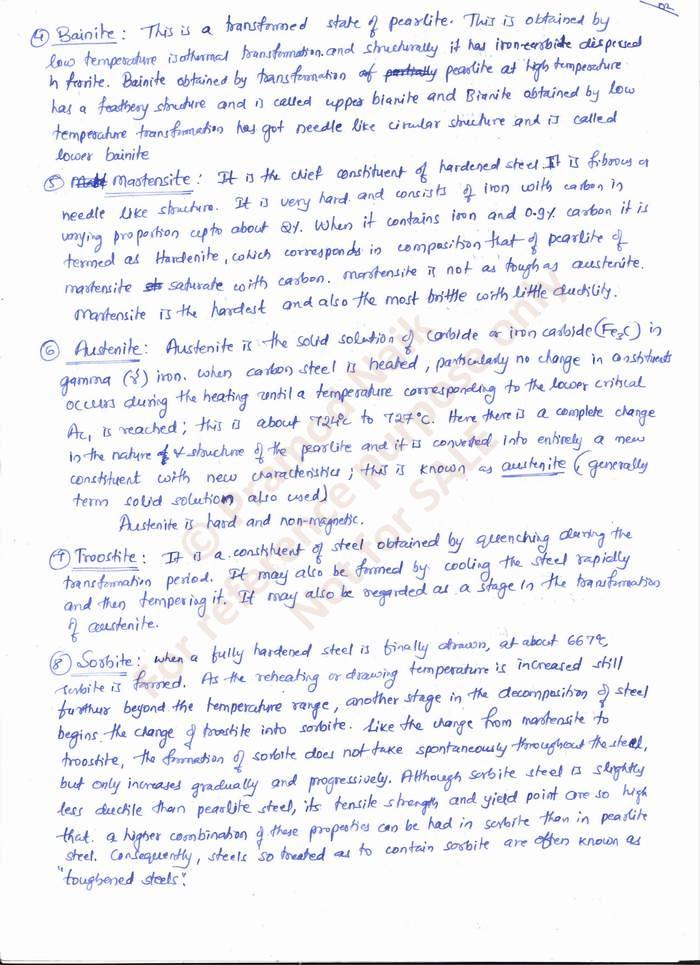 ④ Bainite : This is a transformed state of pearlite. This is obtained by
low temperature isothermal transformation and structurally it has iron-carbide dispersed
in ferrite. Bainite obtained by transformation of partially pearlite at high temperature
has a feathery structure and is called upper bianite and Bianite obtained by low
temperature transformation has got needle like circular structure and is called
lower bainite
⑤ Martensite : It is the chief constituent of hardened steel. It is fibrous or
needle like structure. It is very hard and consists of iron with carbon in
varying proportion upto about 2%. When it contains iron and 0.9% carbon it is
termed as Hardenite, which corresponds in composition that of pearlite of
martensite saturate with carbon. martensite is not as tough as austenite.
Martensite is the hardest and also the most brittle with little ductility.
⑥ Austenite : Austenite is the solid solution of carbide or iron carbide (Fe3C) in
gamma (γ) iron. when carbon steel is heated, particularly no change in constituents
occurs during the heating until a temperature corresponding to the lower critical
Ac1 is reached; this is about 724°c to 727°C. Here there is a complete change
in the nature & structure of the pearlite and it is converted into entirely a new
constituent with new characteristics; this is known as austenite (generally
term solid solution also used)
Austenite is hard and non-magnetic.
⑦ Troostite : It is a constituent of steel obtained by quenching during the
transformation period. It may also be formed by cooling the steel rapidly
and then tempering it. It may also be regarded as a stage in the transformation
of austenite.
⑧ Sorbite : when a fully hardened steel is finally drawn, at about 667°c,
sorbite is formed. As the reheating or drawing temperature is increased still
further beyond the temperature range, another stage in the decomposition of steel
begins the change of troostite into sorbite. Like the change from martensite to
troostite, the formation of sorbite does not take spontaneously throughout the steel,
but only increases gradually and progressively. Although sorbite steel is slightly
less ductile than pearlite steel, its tensile strength and yield point are so high
that a higher combination of these properties can be had in sorbite than in pearlite
steel. Consequently, steels so treated as to contain sorbite are often known as
"toughened steels".
© Pramod Naik
For reference purpose only
Not for SALE